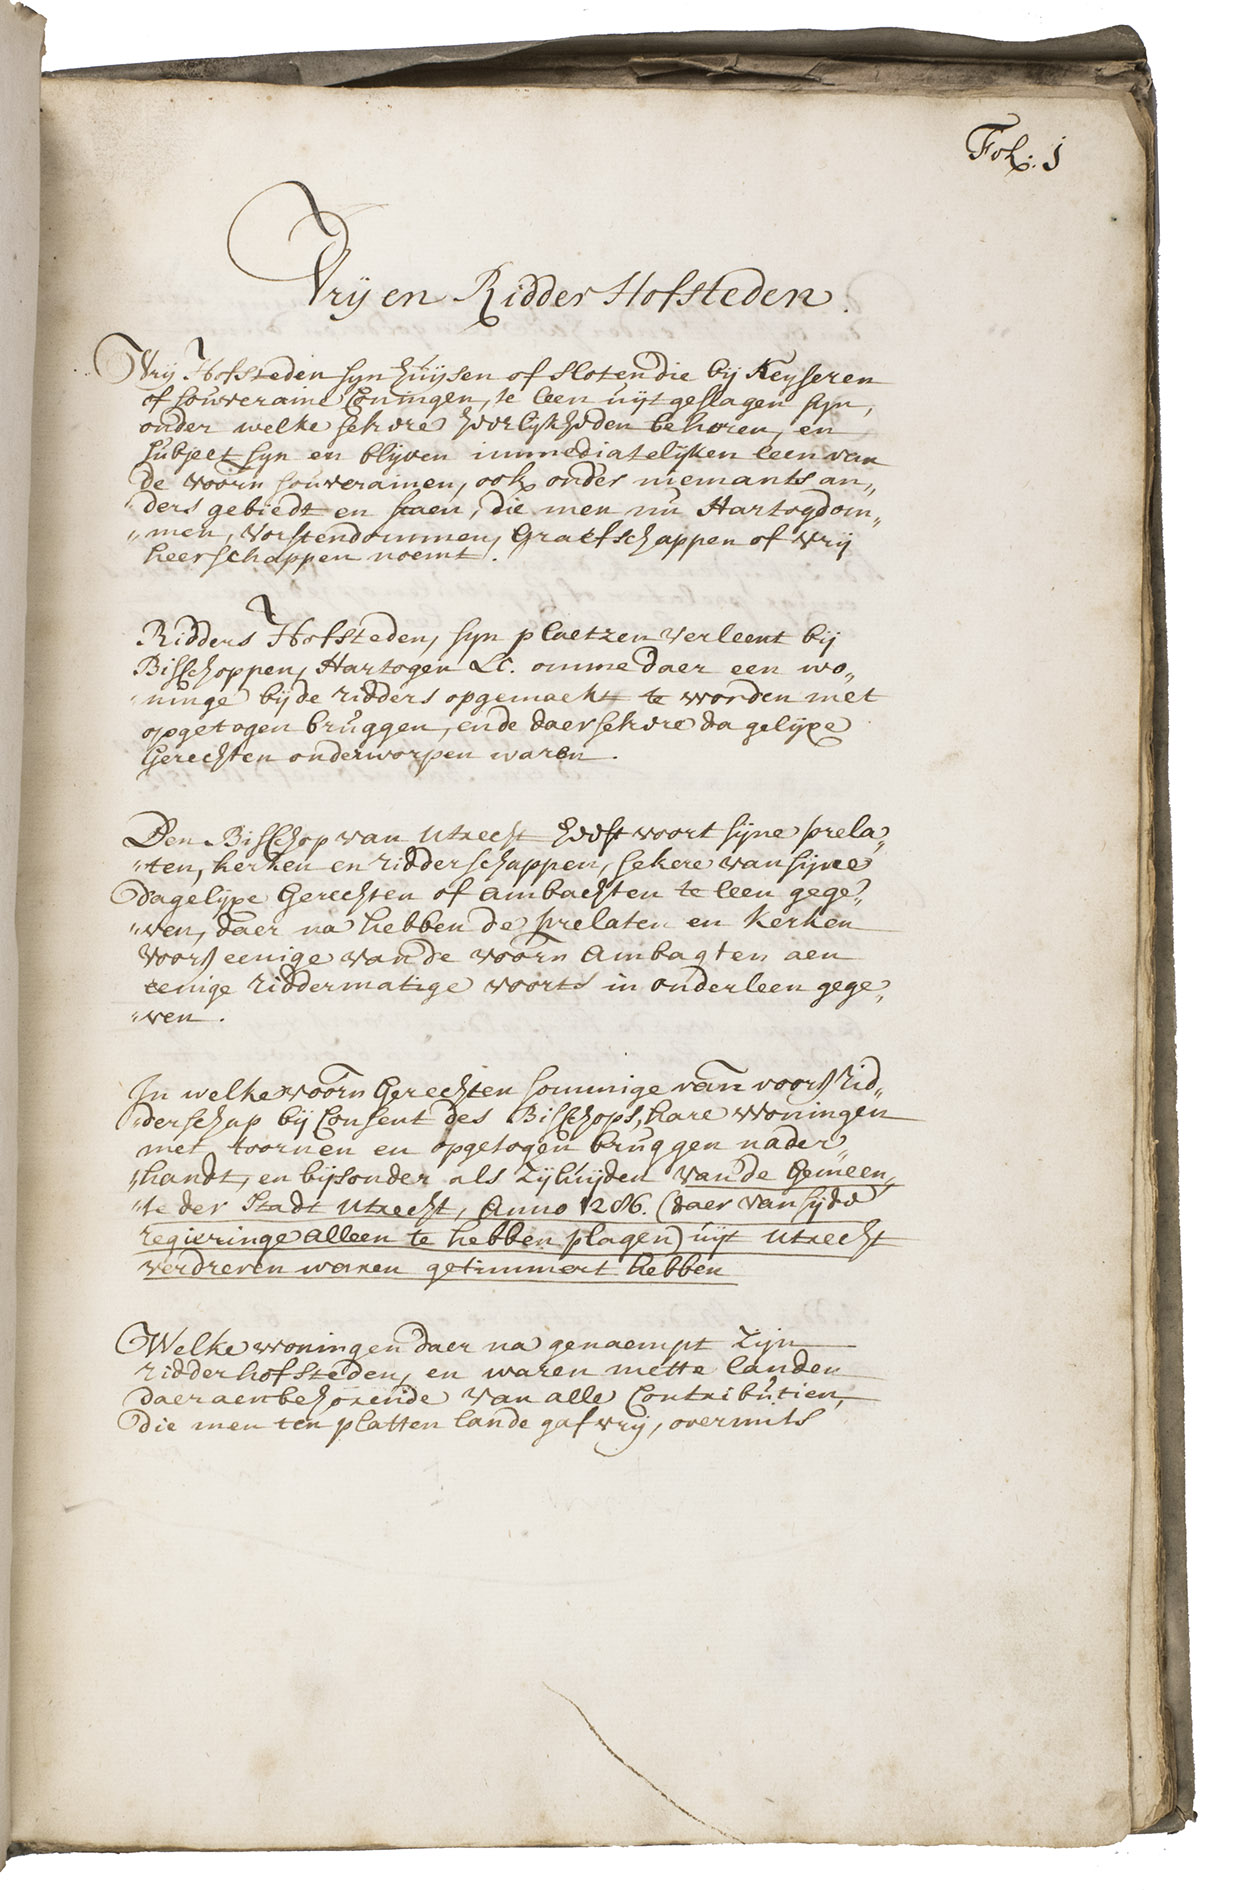 Fol: 1
Vrij en Ridder Hofsteden.
Vrij Hofsteden sijn huijsen of sloten die bij Keyseren
of souveraine Coningen, te leen uijt geslagen sijn,
onder welke sekere heerlijkheden behoren, en
subject sijn en blijven immediatelijken leen van
de voorn souverainen, ook onder niemants an„
„ders gebiedt en staen, die men nu Hartogdom„
„men, Vorstendommen, Graefschappen of Vrij
heerschappen noemt.
Ridders Hofsteden, sijn plaetzen verleent bij
Bisschoppen, Hartogen &c. omme daer een wo„
„ninge bij de ridders opgemaekt te worden met
opgetogen bruggen, ende daer sekere dagelijxe
Gerechten onderworpen waren.
Den Bisschop van Utrecht heeft voort sijne prela„
„ten, kerken en ridderschappen, sekere van sijne
dagelijxe Gerechten of Ambachten te leen gege„
„ven, daer na hebben de prelaten en Kerken
voors eenige van de voorn Ambagten aen
eenige riddermatige voorts in onderleen gege„
„ven.
In welke voorn Gerechten sommige van voors Rid„
„derschap bij Consent des Bisschops, hare Woningen
met toornen en opgetogen bruggen nader„
„handt, en bijsonder als zijluijden van de Gemeen„
„te der Stadt Utrecht, Anno 1286. (daer van sij de
regieringe alleen te hebben plagen) uijt Utrecht
verdreven waren getimmert hebben
Welke woningen daer na genaempt zijn
ridderhofsteden, en waren mette landen
daer aenbehorende van alle Contributien,
die men ten platten lande gaf vrij, overmits